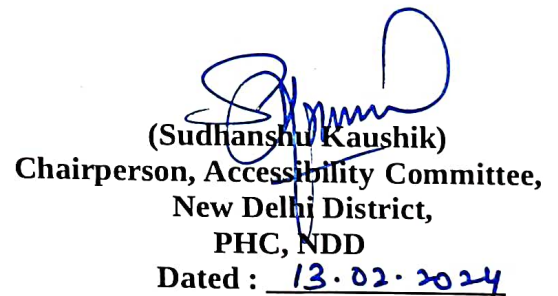 (Sudhanshu Kaushik)
Chairperson, Accessibility Committee,
New Delhi District,
PHC, NDD
Dated : 13.02.2024